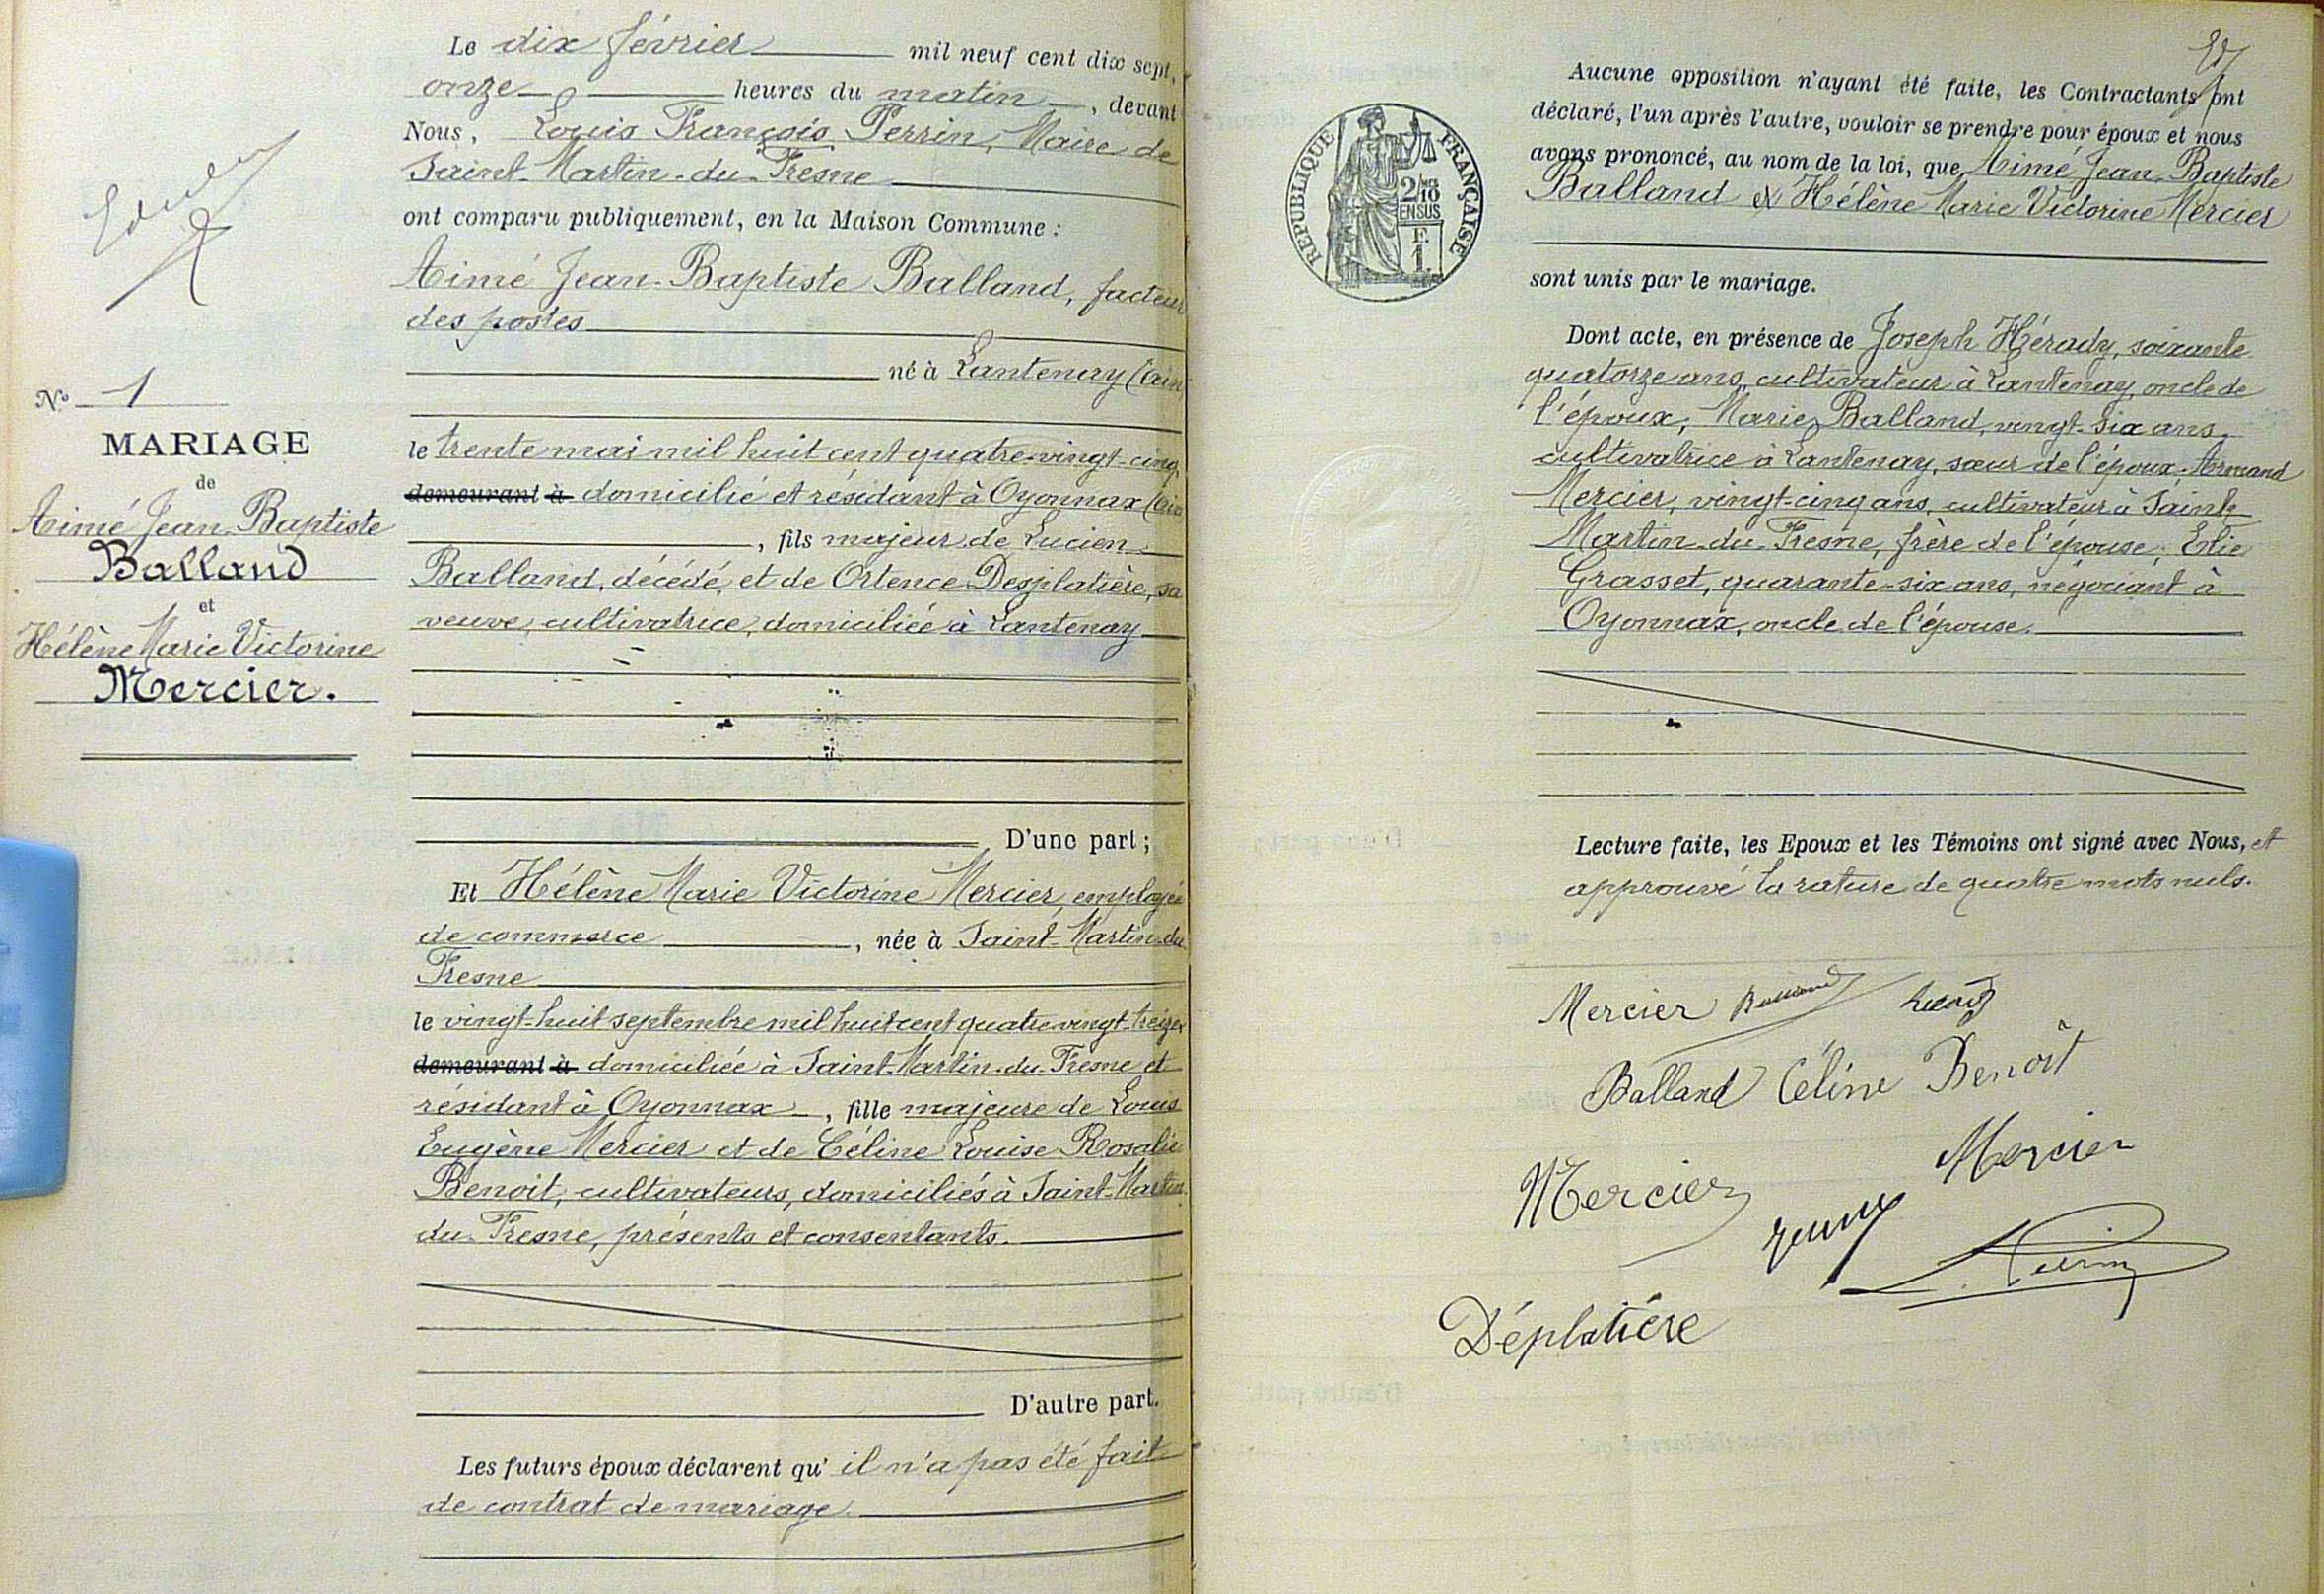 Le dix février mil neuf cent dix sept,
onze heures du matin, devant
Nous, Louis François Perrin, Maire de
Saint-Martin-du-Fresne
ont comparu publiquement, en la Maison Commune :
Aimé Jean-Baptiste Balland, facteur
des postes
né à Lantenay (Ain
le trente mai mil huit cent quatre-vingt-cinq,
demeurant à domicilié et résidant à Oyonnax (Ain
, fils majeur de Lucien
Balland, décédé, et de Ortence Desplatière, sa
veuve, cultivatrice, domiciliée à Lantenay
D'une part ;
Et Hélène Marie Victorine Mercier, employée
de commerce, née à Saint-Martin-du
Fresne
le vingt-huit septembre mil huit cent quatre vingt-treize
demeurant à domiciliée à Saint-Martin-du-Fresne et
résidant à Oyonnax, fille majeure de Louis
Eugène Mercier et de Céline Louise Rosalie
Benoit, cultivateurs, domiciliés à Saint-Martin
du-Fresne, présents et consentants.
D'autre part.
Les futurs époux déclarent qu' il n'a pas été fait
de contrat de mariage.
No 1
MARIAGE
de
Aimé Jean-Baptiste
Balland
et
Hélène Marie Victorine
Mercier.
Aucune opposition n'ayant été faite, les Contractants ont
déclaré, l'un après l'autre, vouloir se prendre pour époux et nous
avons prononcé, au nom de la loi, que Aimé Jean-Baptiste
Balland et Hélène Marie Victorine Mercier
sont unis par le mariage.
Dont acte, en présence de Joseph Hérady, soixante
quatorze ans, cultivateur à Lantenay, oncle de
l'époux; Marie Balland, vingt-six ans,
cultivatrice à Lantenay, sœur de l'époux. Armand
Mercier, vingt-cinq ans, cultivateur à Saint-
Martin-du-Fresne, frère de l'épouse; Elie
Grasset, quarante-six ans, négociant à
Oyonnax, oncle de l'épouse.
Lecture faite, les Epoux et les Témoins ont signé avec Nous, et
approuvé la rature de quatre mots nuls.
Mercier Balland
Balland Céline Benoît
Mercier
Mercier
Perrin
Déplatière
RÉPUBLIQUE FRANÇAISE
2/10
EN SUS
F.
1.